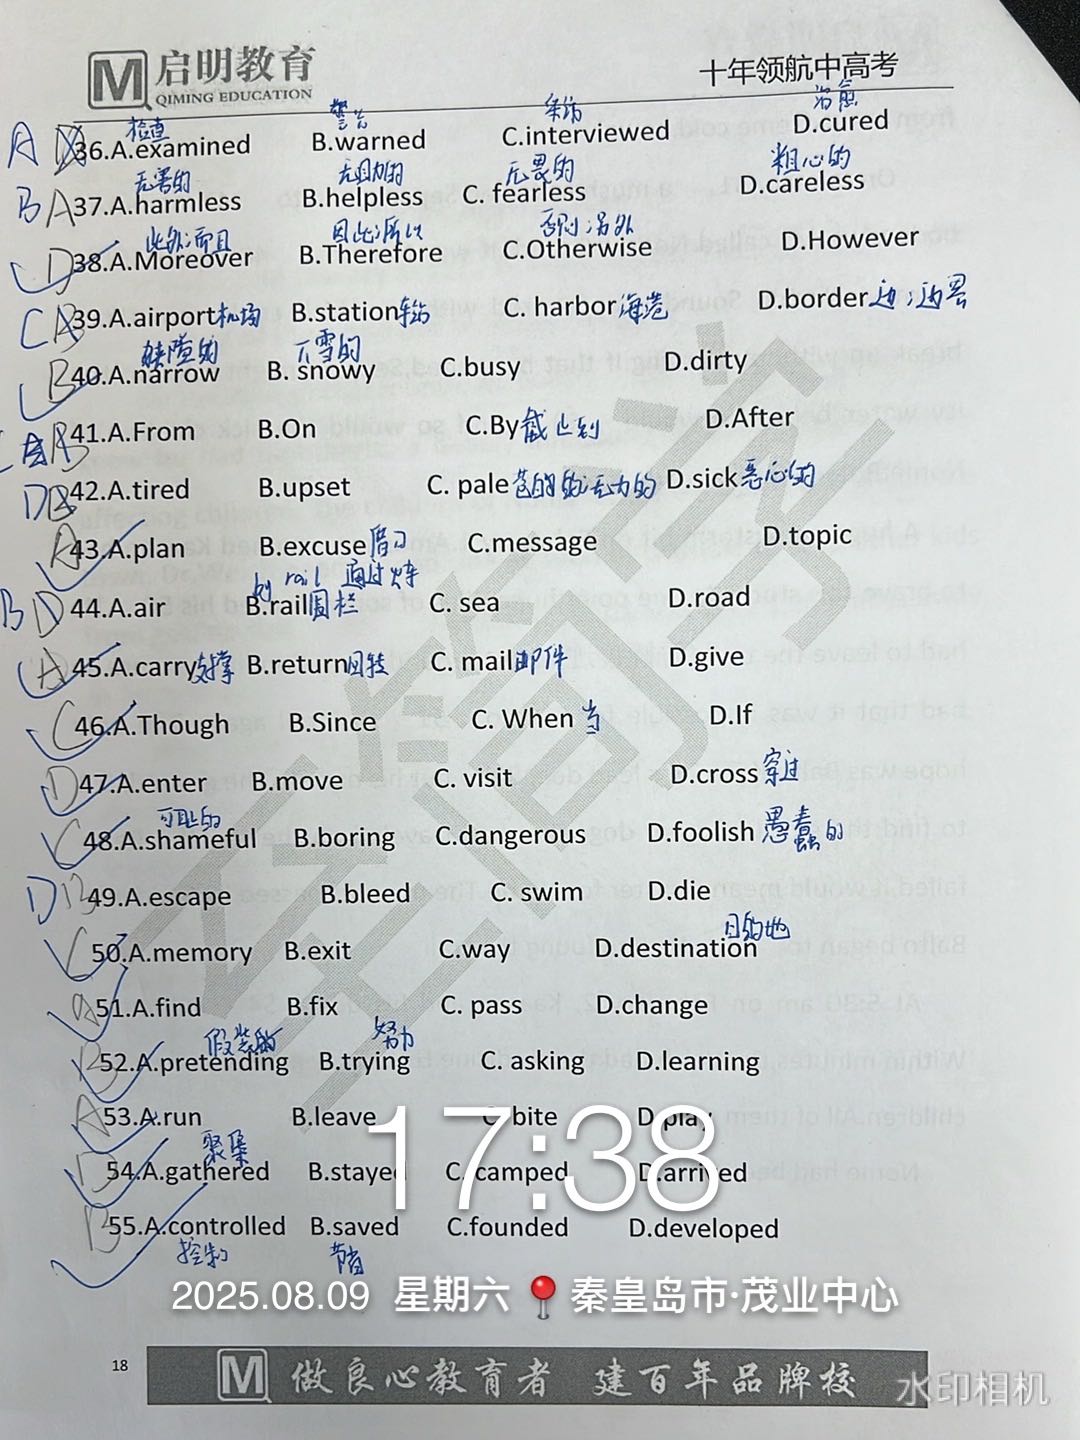 启明教育
QIMING EDUCATION
十年领航中高考
检查 警告 采访 治愈
A D 36.A.examined B.warned C.interviewed D.cured
无害的 无助的 无畏的 粗心的
B A 37.A.harmless B.helpless C. fearless D.careless
此外;而且 因此;所以 否则;另外
D 38.A.Moreover B.Therefore C.Otherwise D.However
C A 39.A.airport机场 B.station车站 C. harbor海港 D.border边;边界
下雪的
B 40.A.narrow B. snowy C.busy D.dirty
41.A.From B.On C.By截止到 D.After
D 42.A.tired B.upset C. pale D.sick恶心的
A 43.A.plan B.excuse借口 C.message D.topic
by rail 通过火车
B D 44.A.air B.rail围栏 C. sea D.road
A 45.A.carry支撑 B.return回转 C. mail邮件 D.give
C 46.A.Though B.Since C. When当 D.If
D 47.A.enter B.move C. visit D.cross穿过
可耻的
C 48.A.shameful B.boring C.dangerous D.foolish愚蠢的
D B 49.A.escape B.bleed C. swim D.die
目的地
C 50.A.memory B.exit C.way D.destination
A 51.A.find B.fix C. pass D.change
假装 努力
B 52.A.pretending B.trying C. asking D.learning
A 53.A.run B.leave C bite D.play
聚集
D 54.A.gathered B.stayed C. camped D.arrived
B 55.A.controlled B.saved C.founded D.developed
控制 节省
17:38
2025.08.09 星期六 秦皇岛市·茂业中心
至简学
18
做良心教育者 建百年品牌校
水印相机